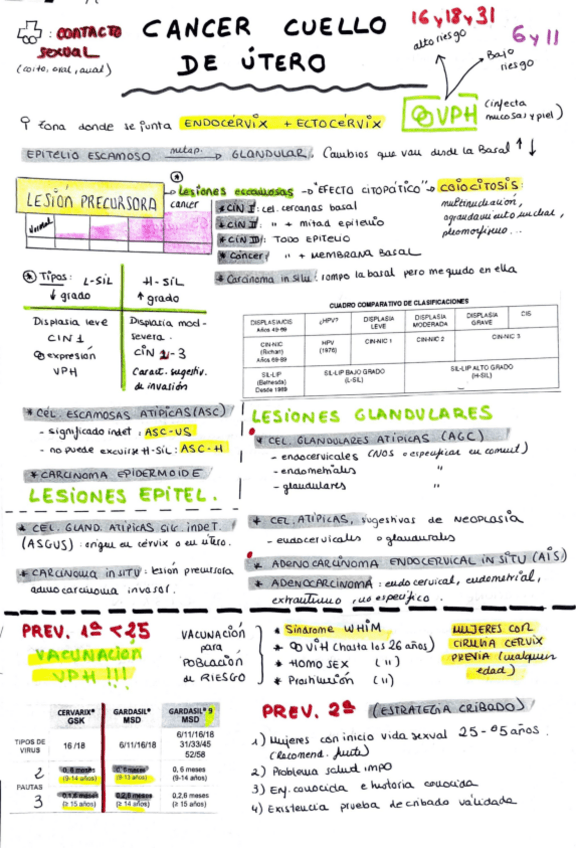 : CONTACTO
SEXUAL
(coito, oral, anal)
CANCER CUELLO
DE ÚTERO
16 y 18 y 31
alto riesgo
6 y 11
Bajo
riesgo
VPH (infecta
mucosas y piel)
zona donde se junta ENDOCÉRVIX + ECTOCÉRVIX
EPITELIO ESCAMOSO metap. → GLANDULAR. Cambios que van desde la Basal ↑ ↓
LESIÓN PRECURSORA
Normal
cancer
Lesiones escamosas → "EFECTO CITOPÁTICO" → COILOCITOSIS:
multinucleación,
agrandamiento nuclear,
pleomorfismo...
* CIN I: cel. cercanas basal
* CIN II: " + mitad epitelio
* CIN III: TODO EPITELIO
* Cancer: " + MEMBRANA BASAL
* Carcinoma in situ: rompo la basal pero me quedo en ella
* Tipos: L-SIL
↓ grado
H-SIL
↑ grado
Displasia leve
CIN 1
expresión
VPH
Displasia mod-
severa.
CIN 2-3
Caract. sugestiv.
de invasión
CUADRO COMPARATIVO DE CLASIFICACIONES
DISPLASIA/CIS
Años 49-69
¿HPV?
DISPLASIA
LEVE
DISPLASIA
MODERADA
DISPLASIA
GRAVE
CIS
CIN-NIC
(Richart)
Años 69-89
HPV
(1976)
CIN-NIC 1
CIN-NIC 2
CIN-NIC 3
SIL-LIP
(Bethesda)
Desde 1989
SIL-LIP BAJO GRADO
(L-SIL)
SIL-LIP ALTO GRADO
(H-SIL)
* CEL. ESCAMOSAS ATÍPICAS (ASC)
- significado indet: ASC-US
- no puede excluirse H-SIL: ASC-H
* CARCINOMA EPIDERMOIDE
LESIONES EPITEL.
LESIONES GLANDULARES
* CEL. GLANDULARES ATÍPICAS (AGC)
- endocervicales (NOS o especificar en coment)
- endometriales "
- glandulares "
* CEL. GLAND. ATIPICAS SIG. INDET.
(ASGUS): origen en cérvix o en útero.
* CARCINOMA in SITU: lesión precursora
adenocarcinoma invasor.
* CEL. ATIPICAS, sugestivas de NEOPLASIA
- endocervicales o glandulares
* ADENOCARCINOMA ENDOCERVICAL IN SITU (AIS)
* ADENOCARCINOMA: endocervical, endometrial,
extrauterino, no específico.
PREV. 1ª < 25
VACUNACIÓN
VPH !!!
VACUNACIÓN
para
POBLACIÓN
de RIESGO
* Síndrome WHIM
* VIH (hasta los 26 años)
* HOMO SEX (")
* Prostitución (")
MUJERES CON
CIRUGÍA CERVIX
PREVIA (cualquier
edad)
CERVARIX®
GSK
GARDASIL®
MSD
GARDASIL® 9
MSD
TIPOS DE
VIRUS
16/18
6/11/16/18
6/11/16/18
31/33/45
52/58
PAUTAS
2
0, 6 meses
(9-14 años)
0, 6 meses
(9-13 años)
0, 6 meses
(9-14 años)
3
0,1,6 meses
(≥ 15 años)
0,2,6 meses
(≥ 14 años)
0,2,6 meses
(≥ 15 años)
PREV. 2ª (ESTRATEGIA CRIBADO)
1) Mujeres con inicio vida sexual 25-65 años.
(Recomend. Junta)
2) Problema salud impo
3) Enf. conocida e historia conocida
4) Existencia prueba de cribado validada